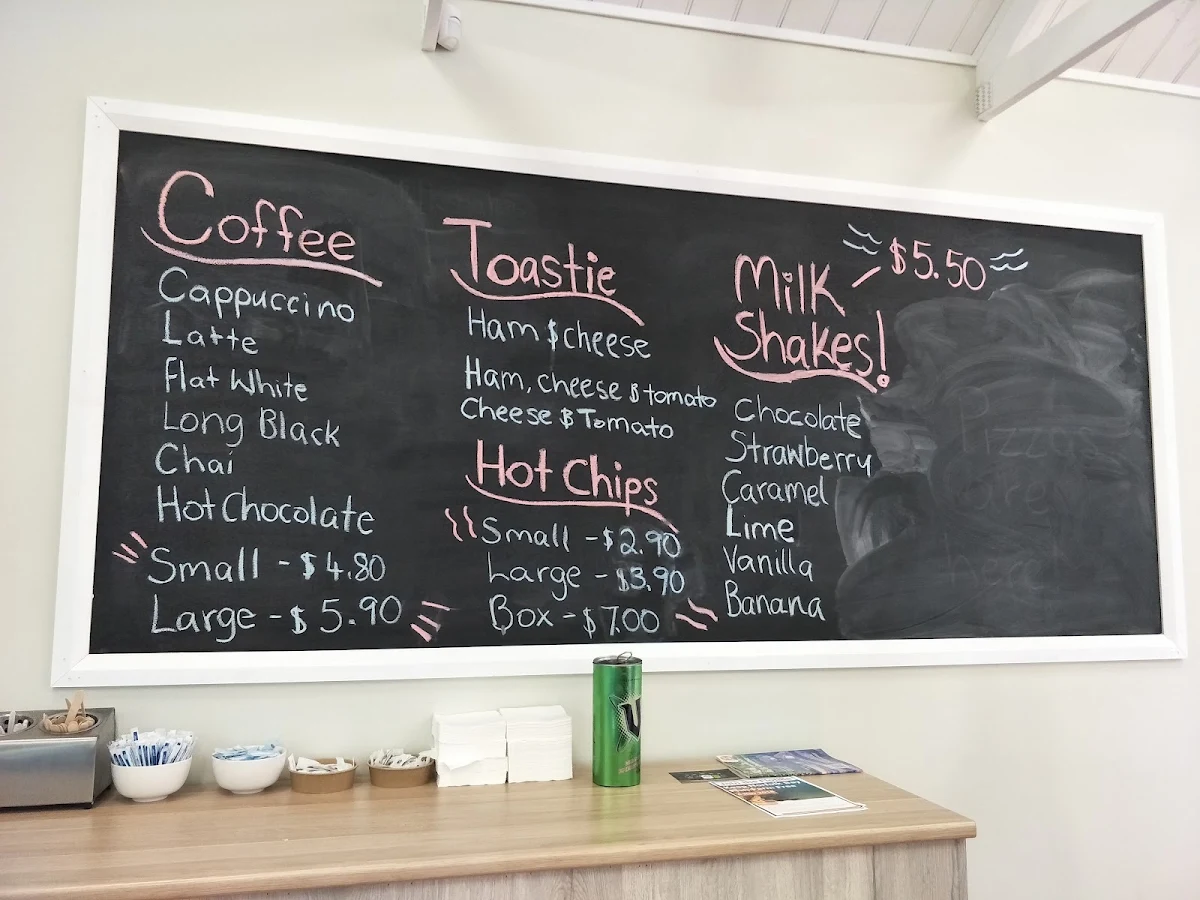 Coffee
Cappuccino
Latte
Flat White
Long Black
Chai
Hot Chocolate
Small - $4.80
Large - $5.90
Toastie
Ham & cheese
Ham, cheese & tomato
Cheese & Tomato
Hot Chips
Small - $2.90
Large - $3.90
Box - $7.00
Milk - $5.50
Shakes!
Chocolate
Strawberry
Caramel
Lime
Vanilla
Banana
Pizzas
V